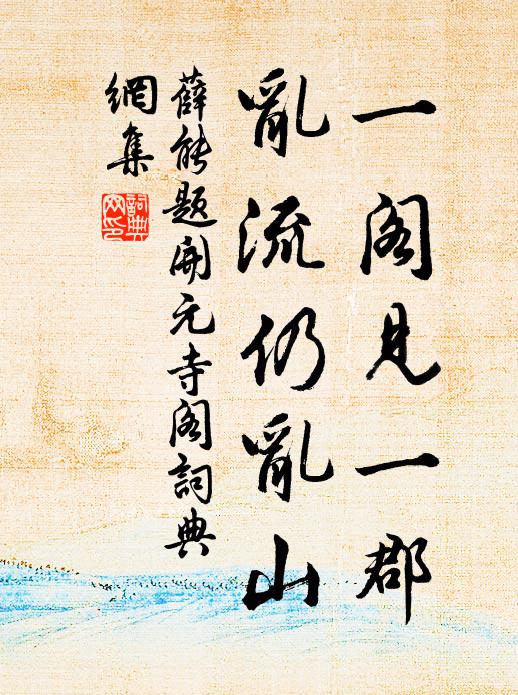 一阁見一郡
亂流仍亂山
薛能題開元寺阁詞典
網集
詞典
网印